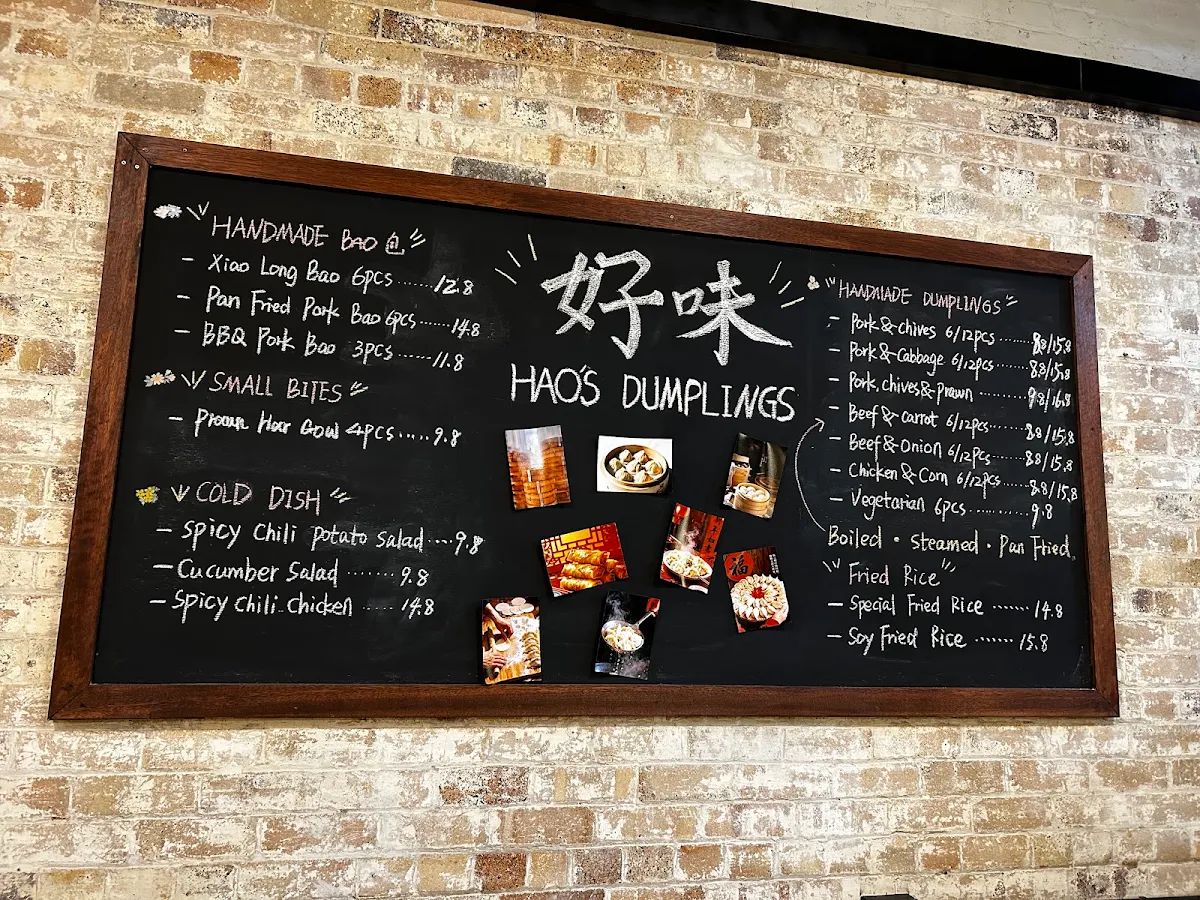 HANDMADE BAO 包
- Xiao Long Bao 6pcs ...... 12.8
- Pan Fried Pork Bao 6pcs ...... 14.8
- BBQ Pork Bao 3pcs ...... 11.8
SMALL BITES
- Prawn Har Gow 4pcs ..... 9.8
COLD DISH
- Spicy Chili Potato Salad .... 9.8
- Cucumber Salad ....... 9.8
- Spicy Chili Chicken ..... 14.8
好味
HAO'S DUMPLINGS
福
HANDMADE DUMPLINGS
- Pork & chives 6/12pcs ........ 8.8/15.8
- Pork & Cabbage 6/12pcs ....... 8.8/15.8
- Pork, chives & Prawn ......... 9.8/16.8
- Beef & carrot 6/12pcs ....... 8.8/15.8
- Beef & Onion 6/12pcs ....... 8.8/15.8
- Chicken & Corn 6/12pcs ..... 8.8/15.8
- Vegetarian 6pcs ............ 9.8
Boiled • Steamed • Pan Fried
Fried Rice
- Special Fried Rice ....... 14.8
- Soy Fried Rice ....... 15.8